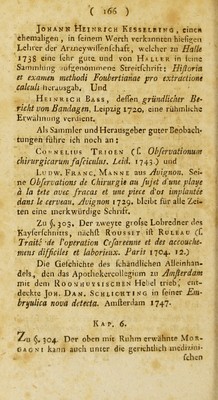 ( 166 )
JOHANN HEINRICH KESSELRING, einen
ehemaligen, in seinem Werth verkannten hiesigen
Lehrer der Arzneywissenschaft, welcher zu Halle
1738 eine sehr gute und von HALLER in seine
Sammlung aufgenommene Streitschrift: Historia
et examen methodi Foubertianae pro extractione
calculi herausgab, Und
HEINRICH BASS, dessen gründlicher Be-
richt von Bandagen, Leipzig 1720, eine rühmliche
Erwähnung verdient.
Als Sammler und Herausgeber guter Beobach-
tungen führe ich noch an:
CORNELIUS TRIOEN (s. Observationum
chirurgicarum fasciculus. Leid. 1743.) und
LUDW. FRANC. MANNE aus Avignon. Sei-
ne Observations de Chirurgie au sujet d'une playe
à la tete avec fracas et une piece d'os implantée
dans le cerveau, Avignon 1729. bleibt für alle Zei-
ten eine merkwürdige Schrift.
Zu §. 303. Der zweyte grosse Lobredner des
Kayserschnitts, nächst ROUSSET ist RULEAU (s.
Traité de l'operation Cesarienne et des accouche-
mens difficiles et laborieux. Paris 1704. 12.)
Die Geschichte des schändlichen Alleinhan-
dels, den das Apothekercollegium zu Amsterdam
mit dem ROONHUYSISCHEN Hebel trieb, ent-
deckte JOH. DAN. SCHLICHTING in seiner Em-
bryulica nova detecta. Amsterdam 1747.
KAP. 6.
Zu §. 304. Der oben mit Ruhm erwähnte MOR-
GAGNI kann auch unter die gerichtlich medizini-
schen